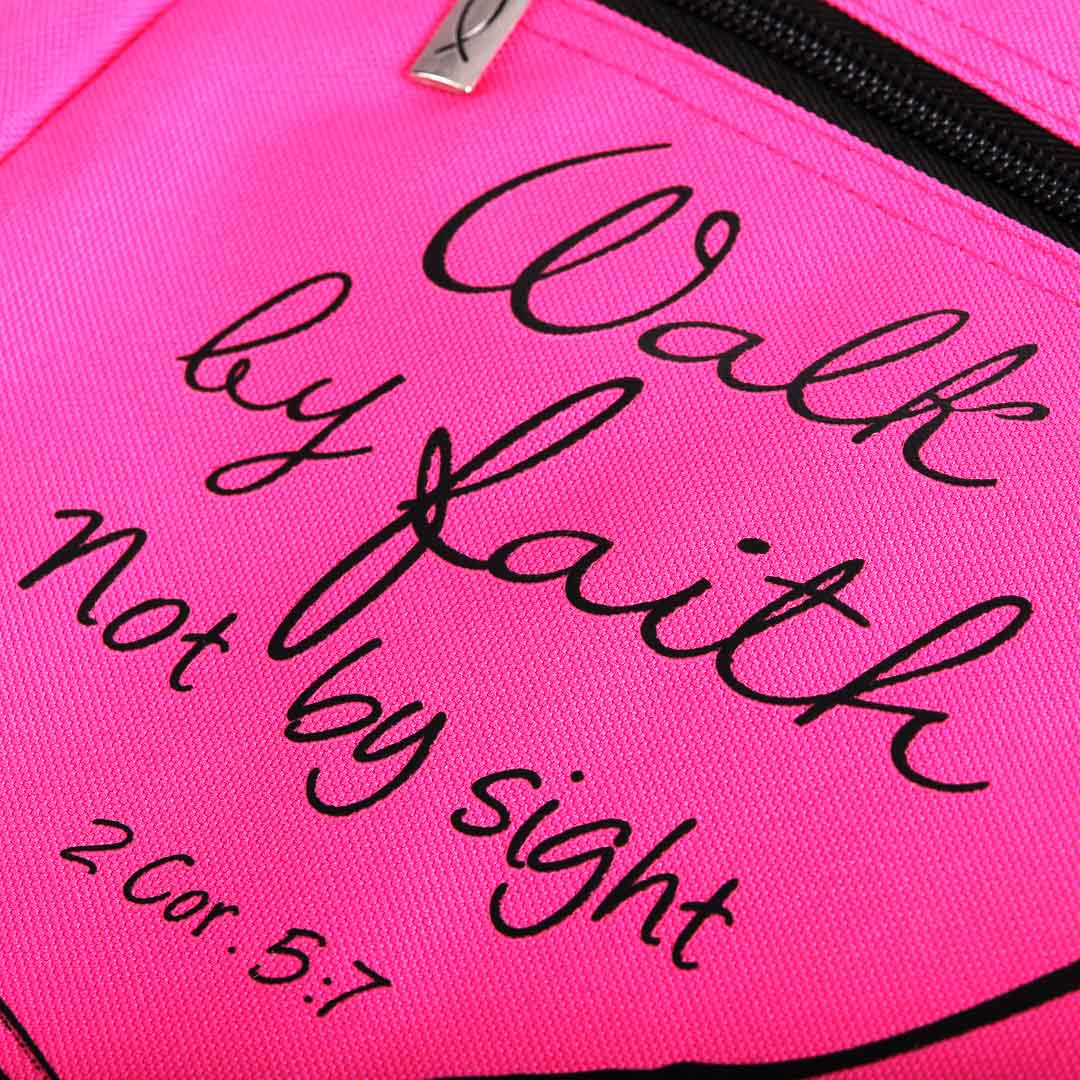 Walk
by faith
Not by sight
2 Cor. 5:7